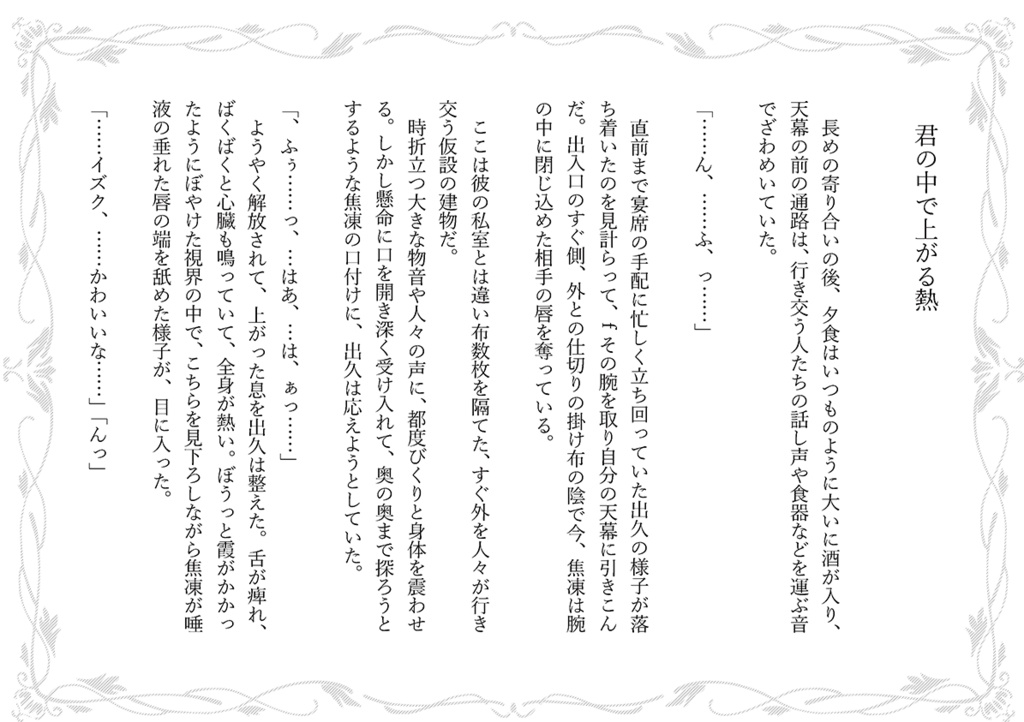 君の中で上がる熱
　長めの寄り合いの後、夕食はいつものように大いに酒が入り、
天幕の前の通路は、行き交う人たちの話し声や食器などを運ぶ音
でざわめいていた。
「……ん、……ふ、っ……」
　直前まで宴席の手配に忙しく立ち回っていた出久の様子が落
ち着いたのを見計らって、fその腕を取り自分の天幕に引きこん
だ。出入口のすぐ側、外との仕切りの掛け布の陰で今、焦凍は腕
の中に閉じ込めた相手の唇を奪っている。
　ここは彼の私室とは違い布数枚を隔てた、すぐ外を人々が行き
交う仮設の建物だ。
　時折立つ大きな物音や人々の声に、都度びくりと身体を震わせ
る。しかし懸命に口を開き深く受け入れて、奥の奥まで探ろうと
するような焦凍の口付けに、出久は応えようとしていた。
「、ふぅ……っ、…はあ、…は、ぁっ……」
　ようやく解放されて、上がった息を出久は整えた。舌が痺れ、
ばくばくと心臓も鳴っていて、全身が熱い。ぼうっと霞がかかっ
たようにぼやけた視界の中で、こちらを見下ろしながら焦凍が唾
液の垂れた唇の端を舐めた様子が、目に入った。
「……イズク、……かわいいな……」「んっ」